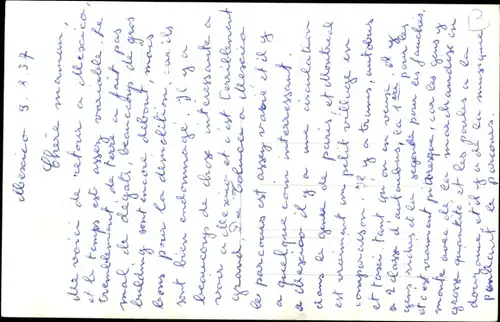 Mexico 9.8.57
Chère maman,
Me voici de retour à Mexico,
et le temps est assez variable. Le
tremblement de terre a fait pas
mal de dégats, beaucoup de gros
building sont encor debout mais
bons pour la démolition, car ils
sont bien endommagé. Il y a
beaucoup de chose interessante a
voir a Mexico et c'est terriblement
grand. De Toluca a Mexico
le parcours est assez varié et il y
a quelque coin interessant.
a Mexico il y a une circulation
dans le genre de paris, et Montreal
est vraiment un petit village en
comparaison. Il y a trams, autobus
et taxi tant qu'on en veux. Il y
a 2 class d'autobus, la 1ère pour les
gens riches et la segonde pour les fauchés,
et c'est vraiment pitoresque, car les gens y
monte avec de la marchandise en
grosse quantité et les poules a la
douzaine et il y a de la musique
pendant le parcours.